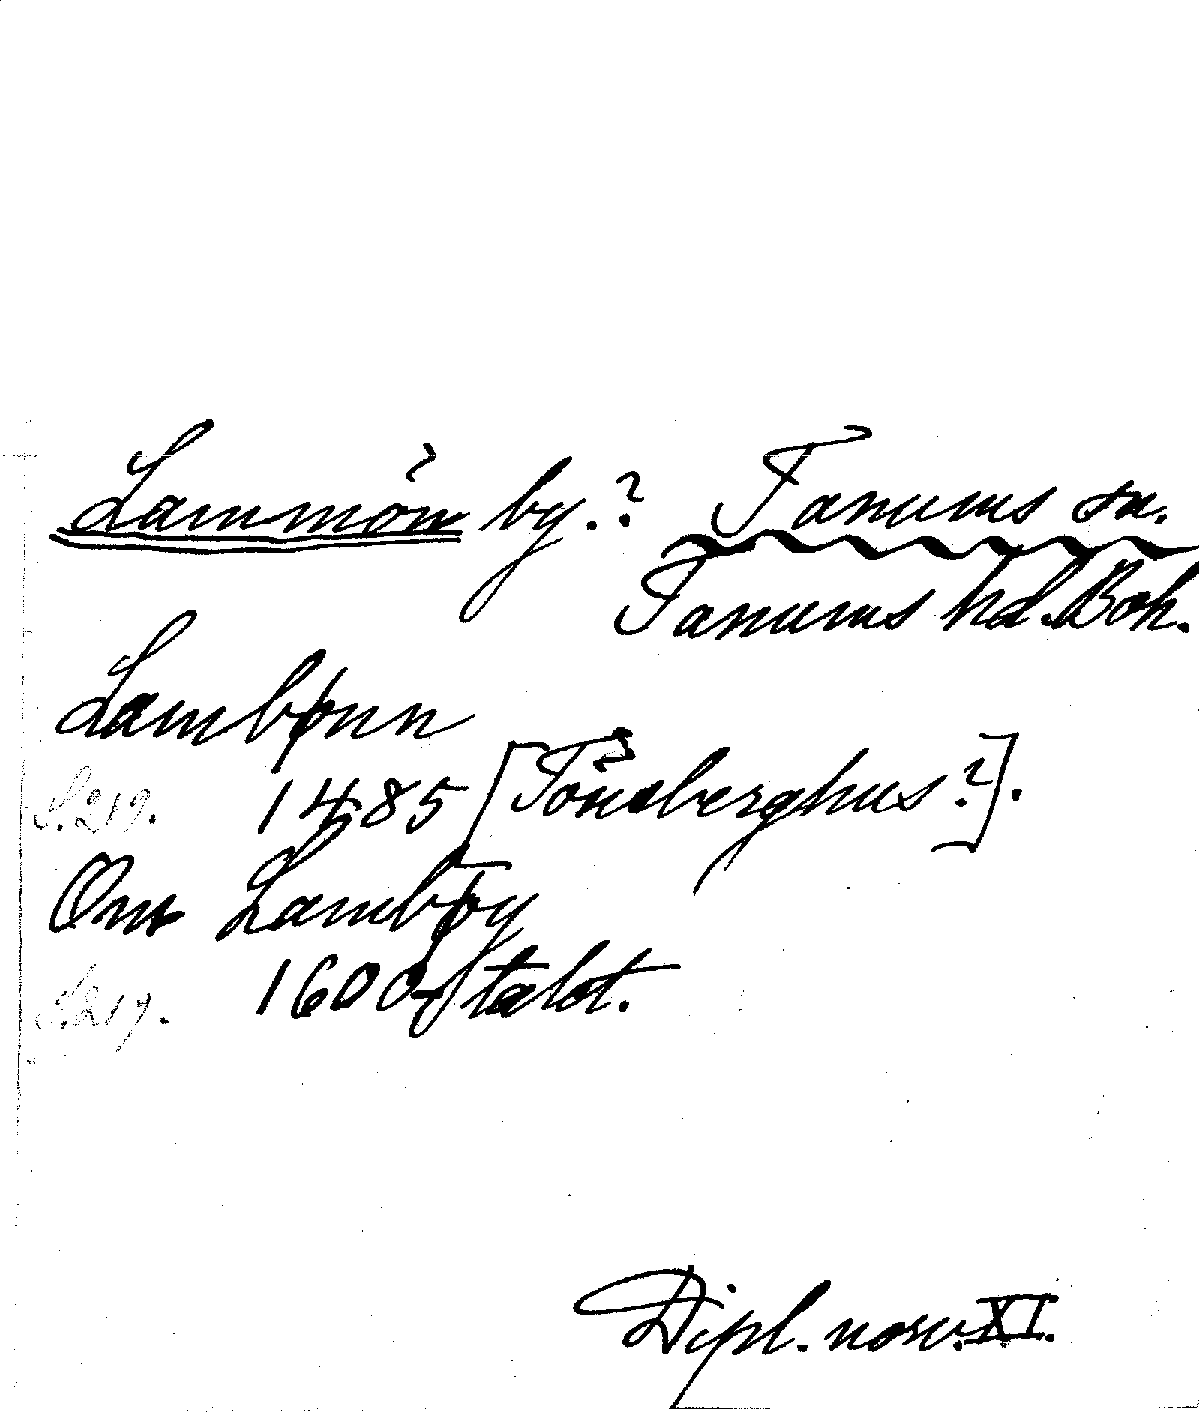 Lammön by.? Tanums sn.
Tanums hd. Boh.
Lambønn
S. 219. 1485 [Tönsberghus?].
Om Lambøy
S. 219. 1600-talet.
Dipl. norv. XI.